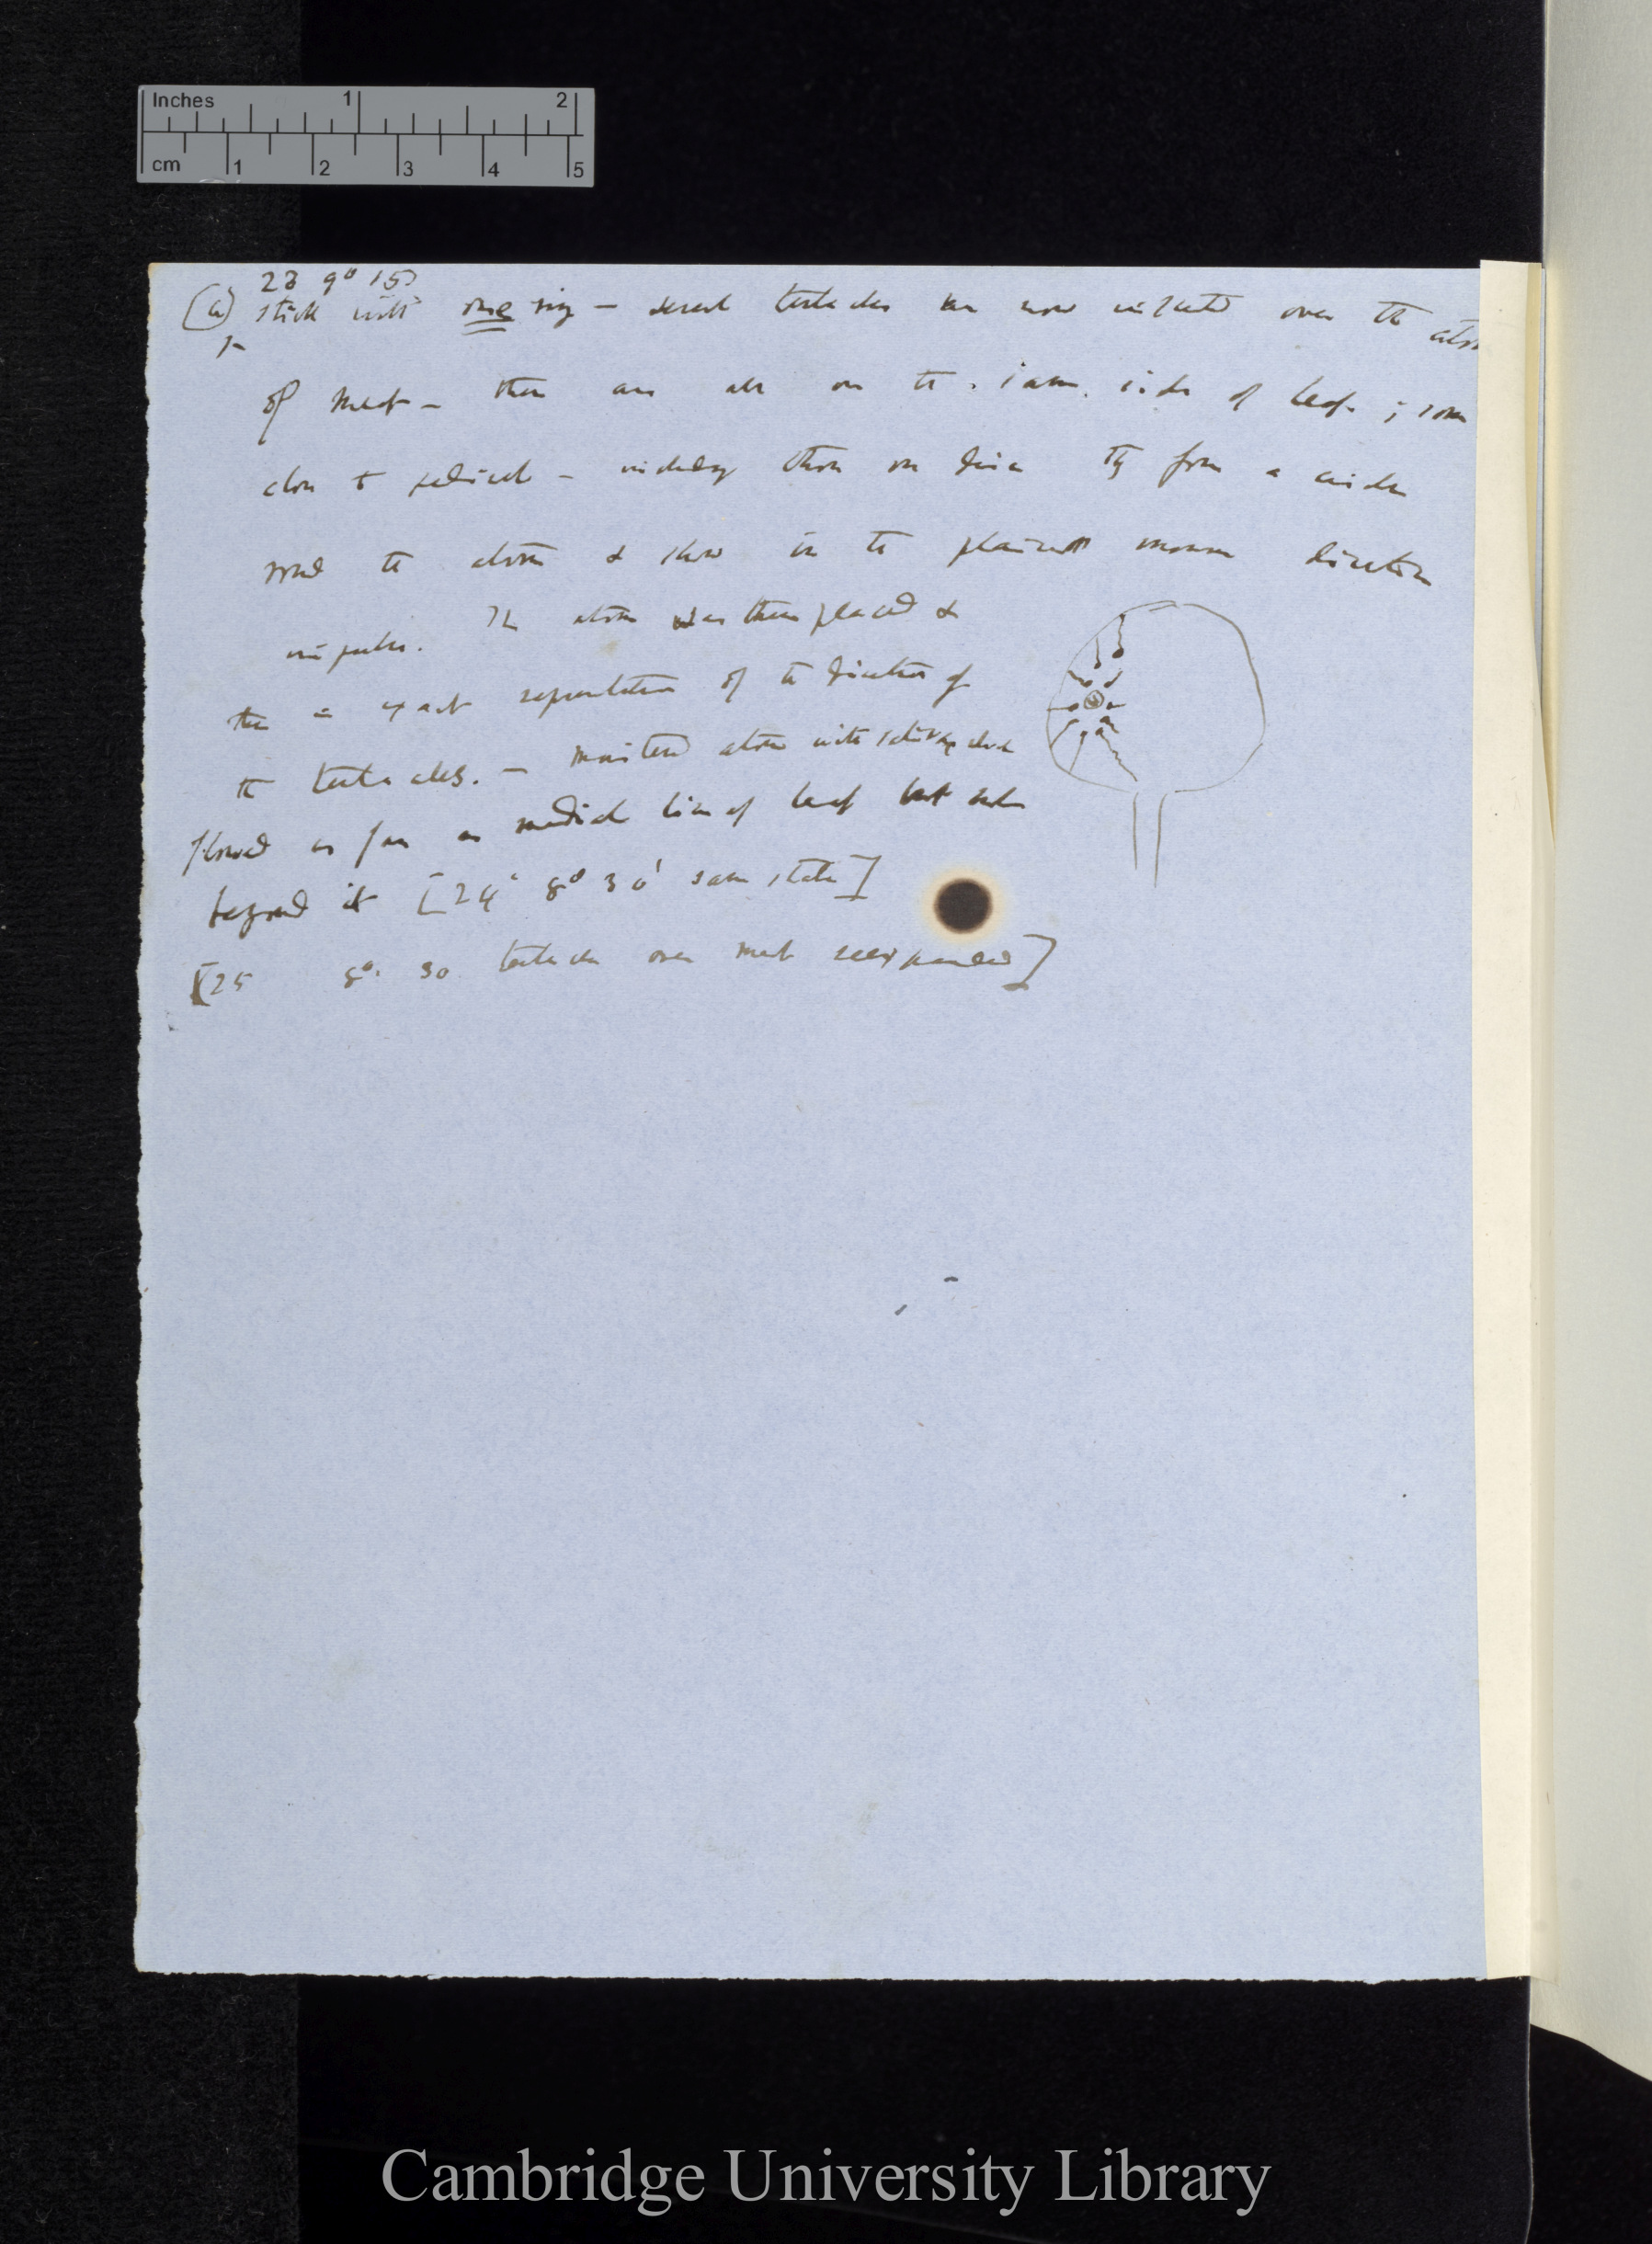 Inches 1 2
cm 1 2 3 4 5
23 9° 15'
(a) stick with one ring — several tentacles are now inflected over the atom
of meat — there are all on the same side of leaf; some
close to pedicel — including those on disc they form a circle
round the atom & show in the plainest manner direction
impulse. The atom was then placed &
the = exact representation of the direction of
the tentacles. — moistened atom with saliva
flowed as far as medial line of leaf but not
beyond it [24 8° 30' same state]
[25 8° 30 tentacles over meat reexpanded]
Cambridge University Library